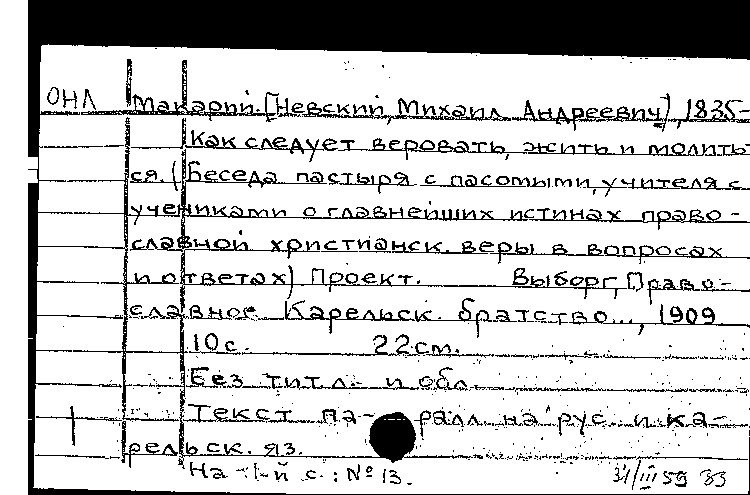 ОНЛ Макарий. [Невский, Михаил Андреевич], 1835-
Как следует веровать, жить и молить-
ся. (Беседа пастыря с пасомыми, учителя с
учениками о главнейших истинах право-
славной христианск. веры в вопросах
и ответах) Проект. Выборг, Право-
славное Карельск. братство..., 1909
10 с. 22 см.
Без тит. л. и обл.
Текст па- ралл. на рус. и ка-
рельск. яз.
На 1-й с.: № 13.
31/III 59